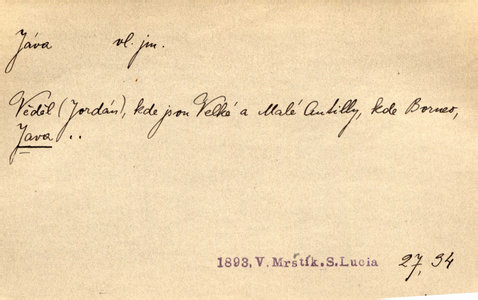 Jáva vl. jm.
Věděl (Jordán), kde jsou Velké a Malé Antilly, kde Borneo,
Java ..
1893, V. Mrštík. S. Lucia 27, 34